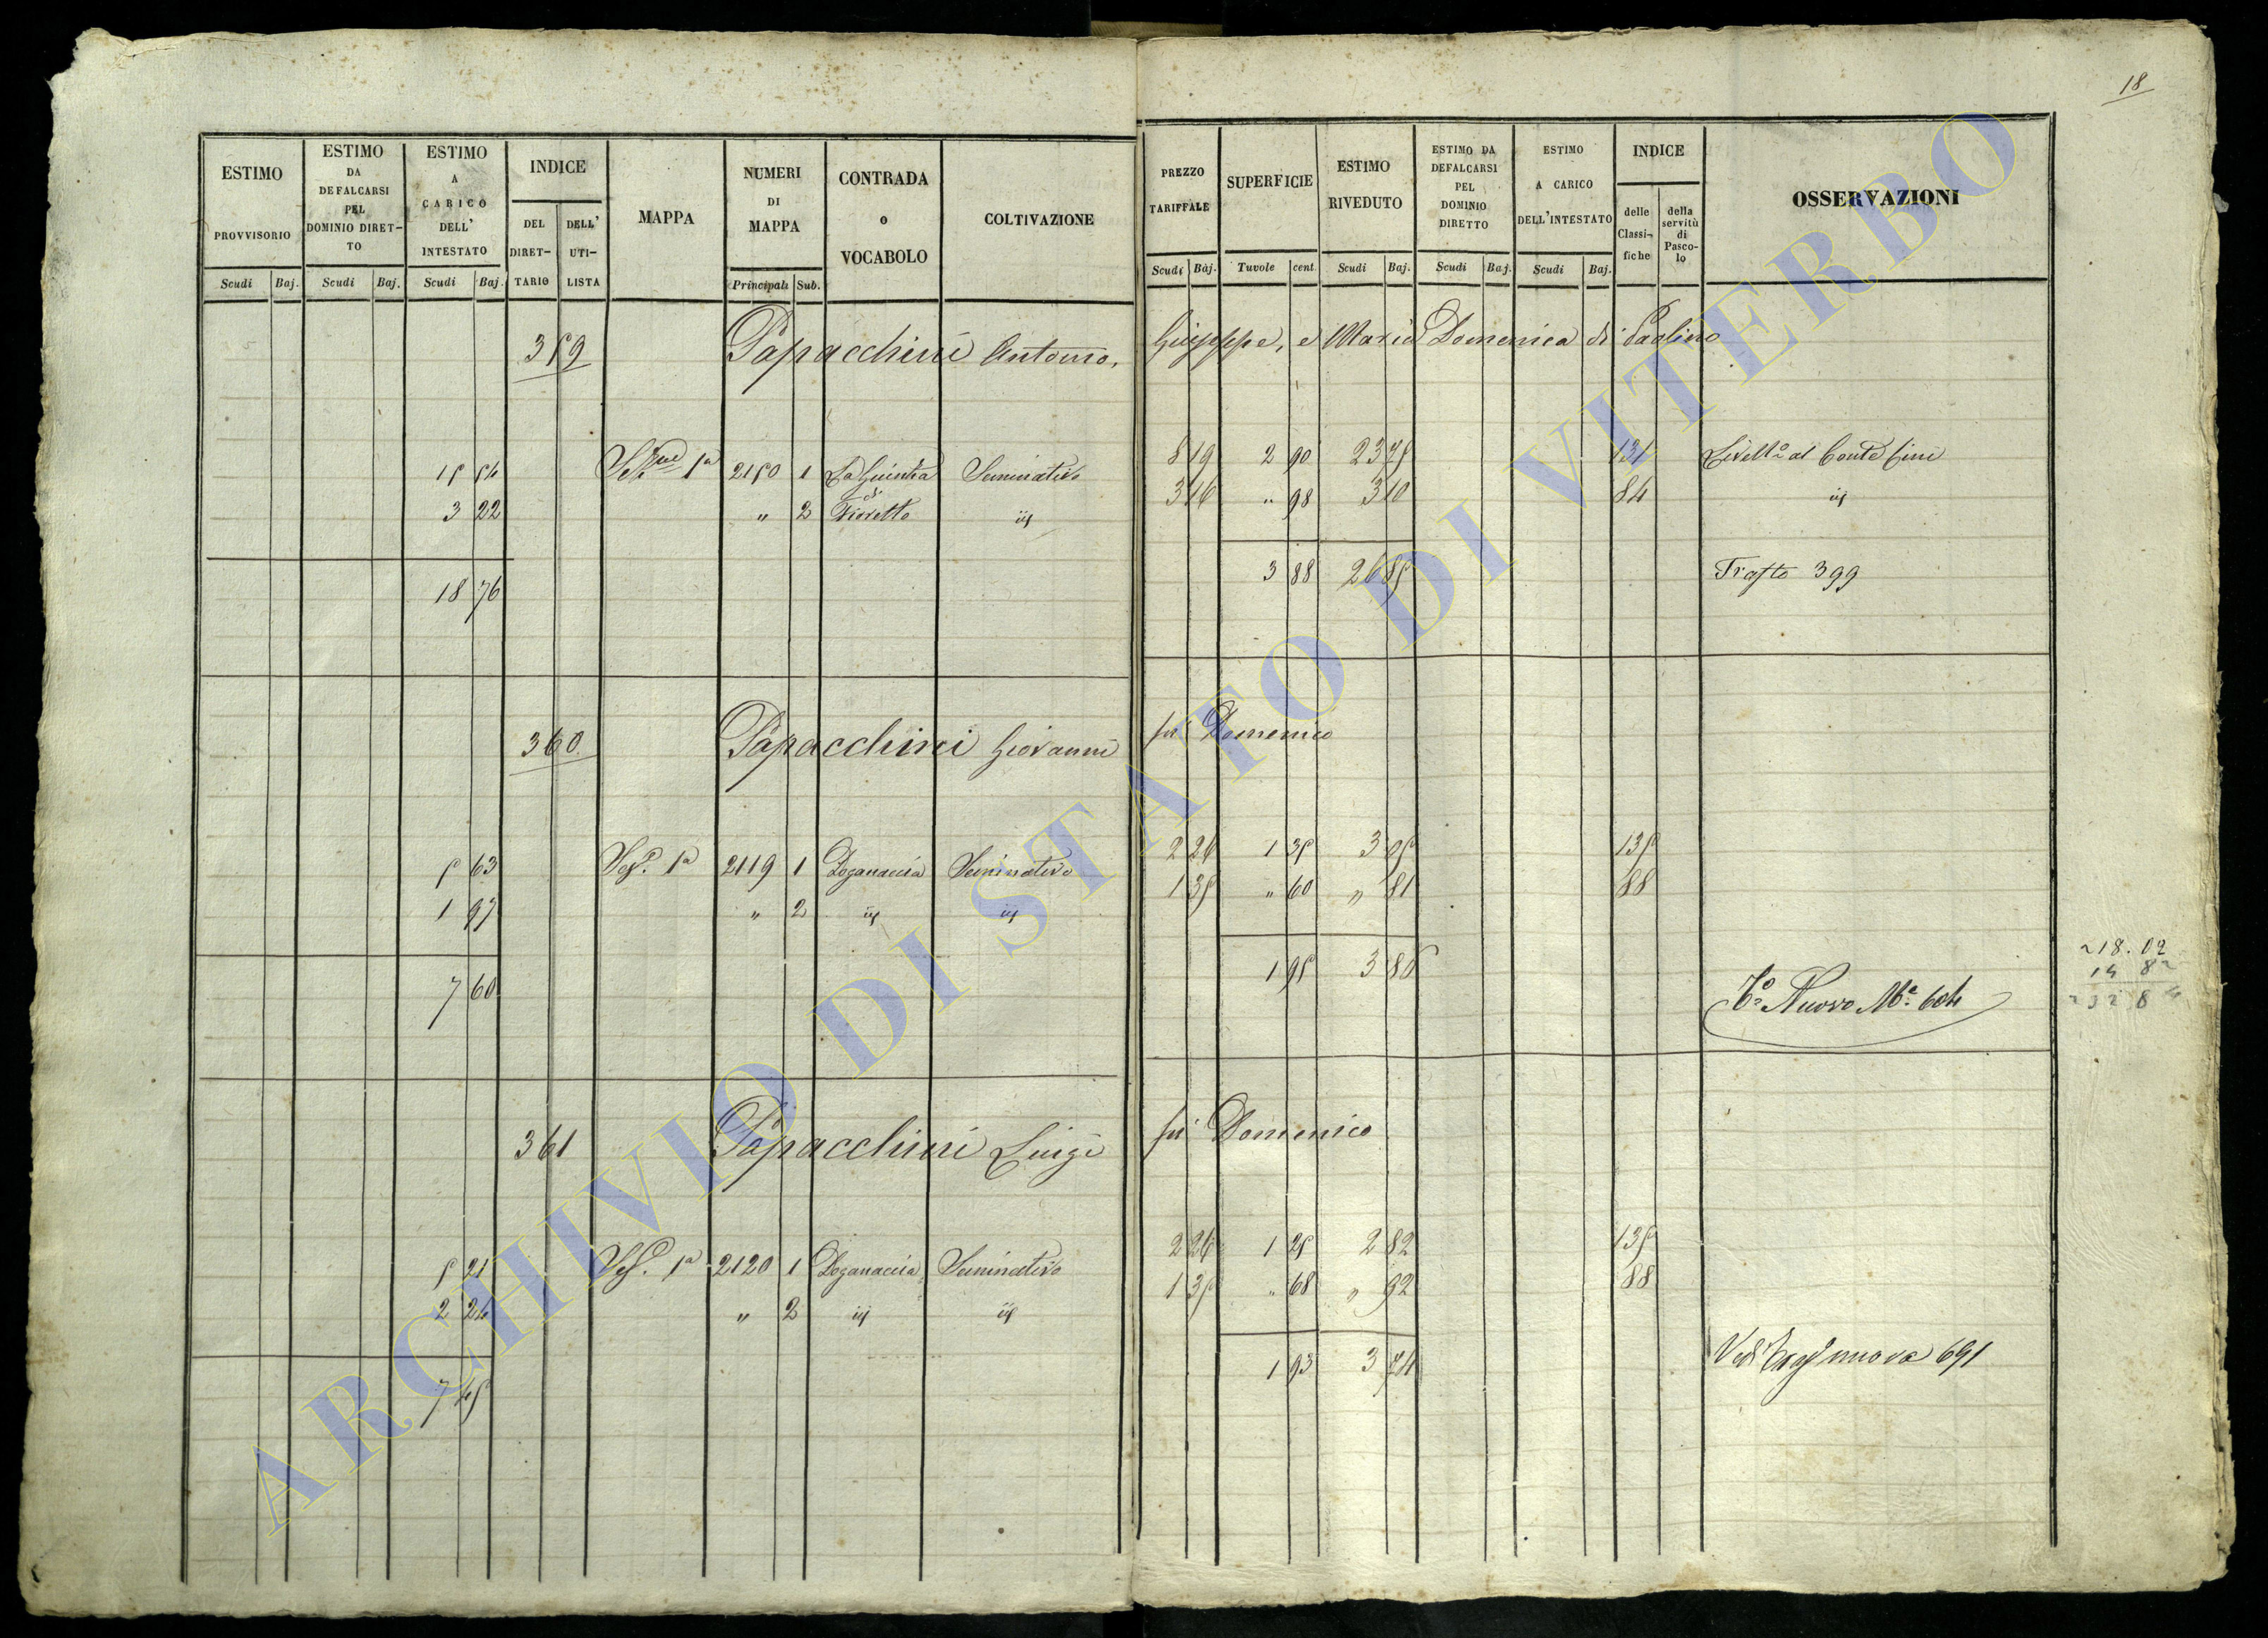 18
ESTIMO PROVVISORIO
ESTIMO DA DEFALCARSI PEL DOMINIO DIRET-TO
ESTIMO A CARICO DELL' INTESTATO
INDICE
DEL DIRET-TARIO
DELL' UTI-LISTA
MAPPA
NUMERI DI MAPPA
CONTRADA o VOCABOLO
COLTIVAZIONE
PREZZO TARIFFALE
SUPERFICIE
ESTIMO RIVEDUTO
ESTIMO DA DEFALCARSI PEL DOMINIO DIRETTO
ESTIMO A CARICO DELL'INTESTATO
INDICE
delle Classi-fiche
della servitù di Pasco-lo
OSSERVAZIONI
Scudi Baj. Scudi Baj. Scudi Baj. Principali Sub. Scudi Baj. Tavole cent. Scudi Baj. Scudi Baj. Scudi Baj.
359 Papacchini Antonio, Giuseppe, e Maria Domenica di Paolino
15 54 Sez.ne 1a 2150 1 La Quinta Seminativo 8 19 2 90 23 75 131 Livell.o al Conte Cini
3 22 " 2 di Fioretto iij 3 16 " 98 3 10 84 iij
18 76 3 88 26 85 Trasto 399
360 Papacchini Giovanni fu Domenico
5 63 Sez. 1a 2119 1 Doganaccia Seminativo 2 26 1 35 3 05 135
1 97 " 2 iij iij 1 35 " 60 " 81 88
7 60 1 95 3 86
Nuovo 604
~18.02
361 Papacchini Luigi fu Domenico
5 21 Sez. 1a 2120 1 Doganaccia Seminativo 2 26 1 25 2 82 135
2 24 " 2 iij iij 1 35 " 68 " 92 88
7 45 1 93 3 74 Vedi nuova 691
ARCHIVIO DI STATO DI VITERBO